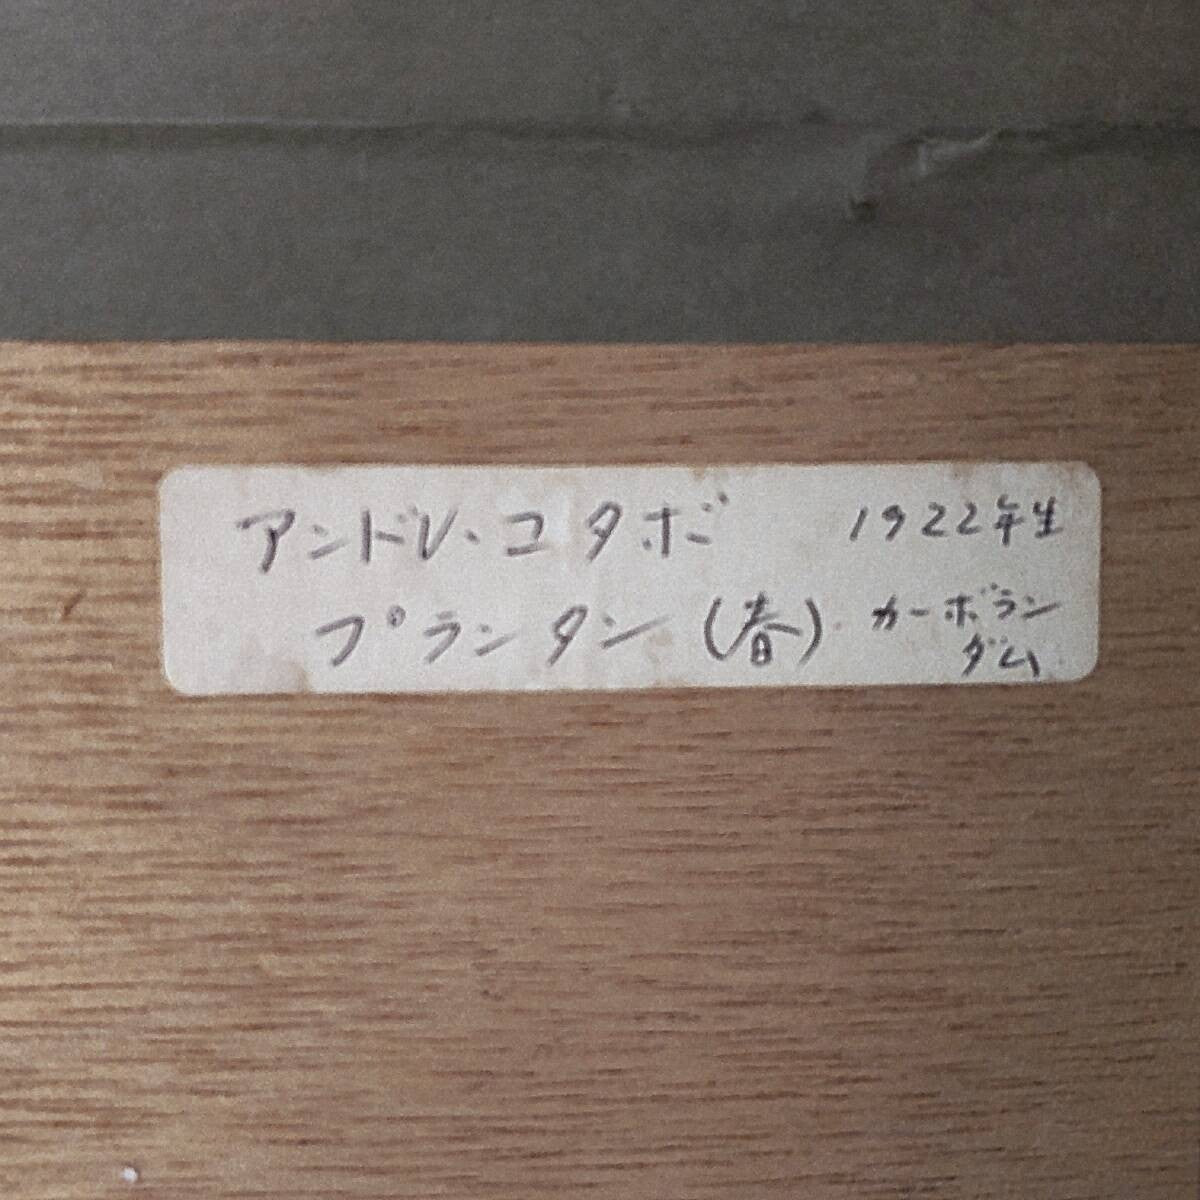 アンドレ・コタボ 1922年生
プランタン(春) カーボラン
ダム